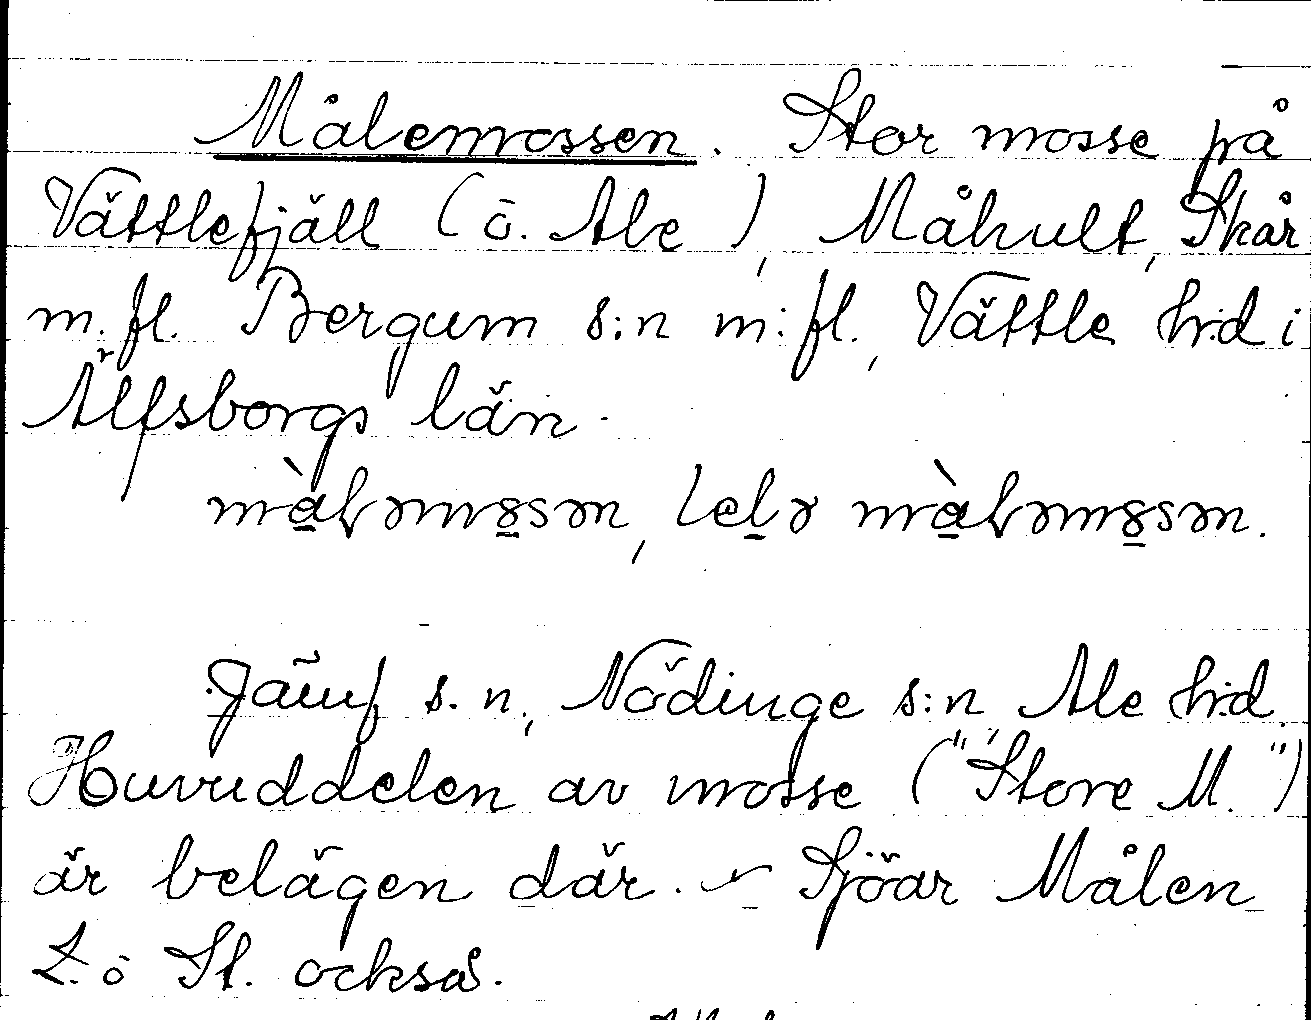 Målemossen. Stor mosse på
Vättlefjäll (ö. Ale), Måhult, Skår
m.fl. Bergum s:n m.fl., Vättle h:d i
Älfsborgs län.
Jämf s.n, Nödinge s:n Ale h:d.
Huvuddelen av mosse ("Store M.")
är belägen där. – Sjöar Målen
L. o St. också.